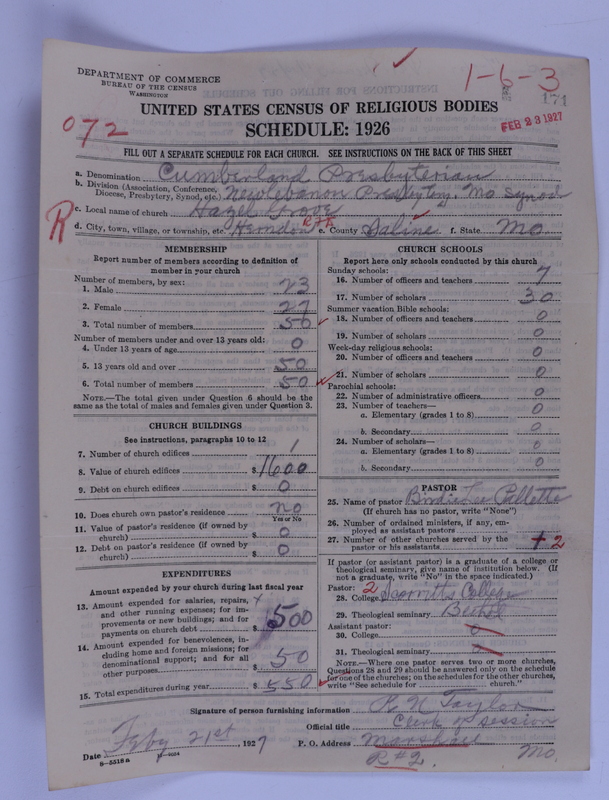 DEPARTMENT OF COMMERCE
BUREAU OF THE CENSUS
WASHINGTON
1-6-3
171
072
UNITED STATES CENSUS OF RELIGIOUS BODIES
SCHEDULE: 1926
FEB 23 1927
FILL OUT A SEPARATE SCHEDULE FOR EACH CHURCH. SEE INSTRUCTIONS ON THE BACK OF THIS SHEET
a. Denomination Cumberland Presbyterian
b. Division (Association, Conference, Diocese, Presbytery, Synod, etc.) New Lebanon Presbytery, Mo Synod
R
c. Local name of church Hazel Grove
d. City, town, village, or township, etc. Herndon e. County Saline f. State Mo
MEMBERSHIP
Report number of members according to definition of
member in your church
Number of members, by sex:
1. Male 23
2. Female 27
3. Total number of members 50
Number of members under and over 13 years old:
4. Under 13 years of age 0
5. 13 years old and over 50
6. Total number of members 50
NOTE.—The total given under Question 6 should be
same as the total of males and females given under Question 3.
CHURCH BUILDINGS
See instructions, paragraphs 10 to 12
7. Number of church edifices 1
8. Value of church edifices $ 1600
9. Debt on church edifices $ 0
10. Does church own pastor's residence no
Yes or No
11. Value of pastor's residence (if owned by
church) $ 0
12. Debt on pastor's residence (if owned by
church) $ 0
EXPENDITURES
Amount expended by your church during last fiscal year
13. Amount expended for salaries, repairs,
and other running expenses; for im-
provements or new buildings; and for
payments on church debt $ 500
14. Amount expended for benevolences, in-
cluding home and foreign missions; for
denominational support; and for all
other purposes $ 50
15. Total expenditures during year $ 550
CHURCH SCHOOLS
Report here only schools conducted by this church
Sunday schools:
16. Number of officers and teachers 7
17. Number of scholars 30
Summer vacation Bible schools:
18. Number of officers and teachers 0
19. Number of scholars 0
Week-day religious schools:
20. Number of officers and teachers 0
21. Number of scholars 0
Parochial schools:
22. Number of administrative officers 0
23. Number of teachers—
a. Elementary (grades 1 to 8) 0
b. Secondary 0
24. Number of scholars—
a. Elementary (grades 1 to 8) 0
b. Secondary 0
PASTOR
25. Name of pastor
(If church has no pastor, write "None")
26. Number of ordained ministers, if any, em-
ployed as assistant pastors
27. Number of other churches served by the
pastor or his assistants 2
If pastor (or assistant pastor) is a graduate of a college or
theological seminary, give name of institution below. (If
not a graduate, write "No" in the space indicated.)
Pastor: 2
28. College Scarritts College
29. Theological seminary Bethel
Assistant pastor:
30. College 0
31. Theological seminary 0
NOTE.—Where one pastor serves two or more churches,
Questions 28 and 29 should be answered only on the schedule
for one of the churches; on the schedules for the other churches,
write "See schedule for church."
Signature of person furnishing information R N Taylor
Official title Clerk of Session
Date Feby 21st, 1927 P. O. Address Marshall
R#2. Mo.
8-5518 a